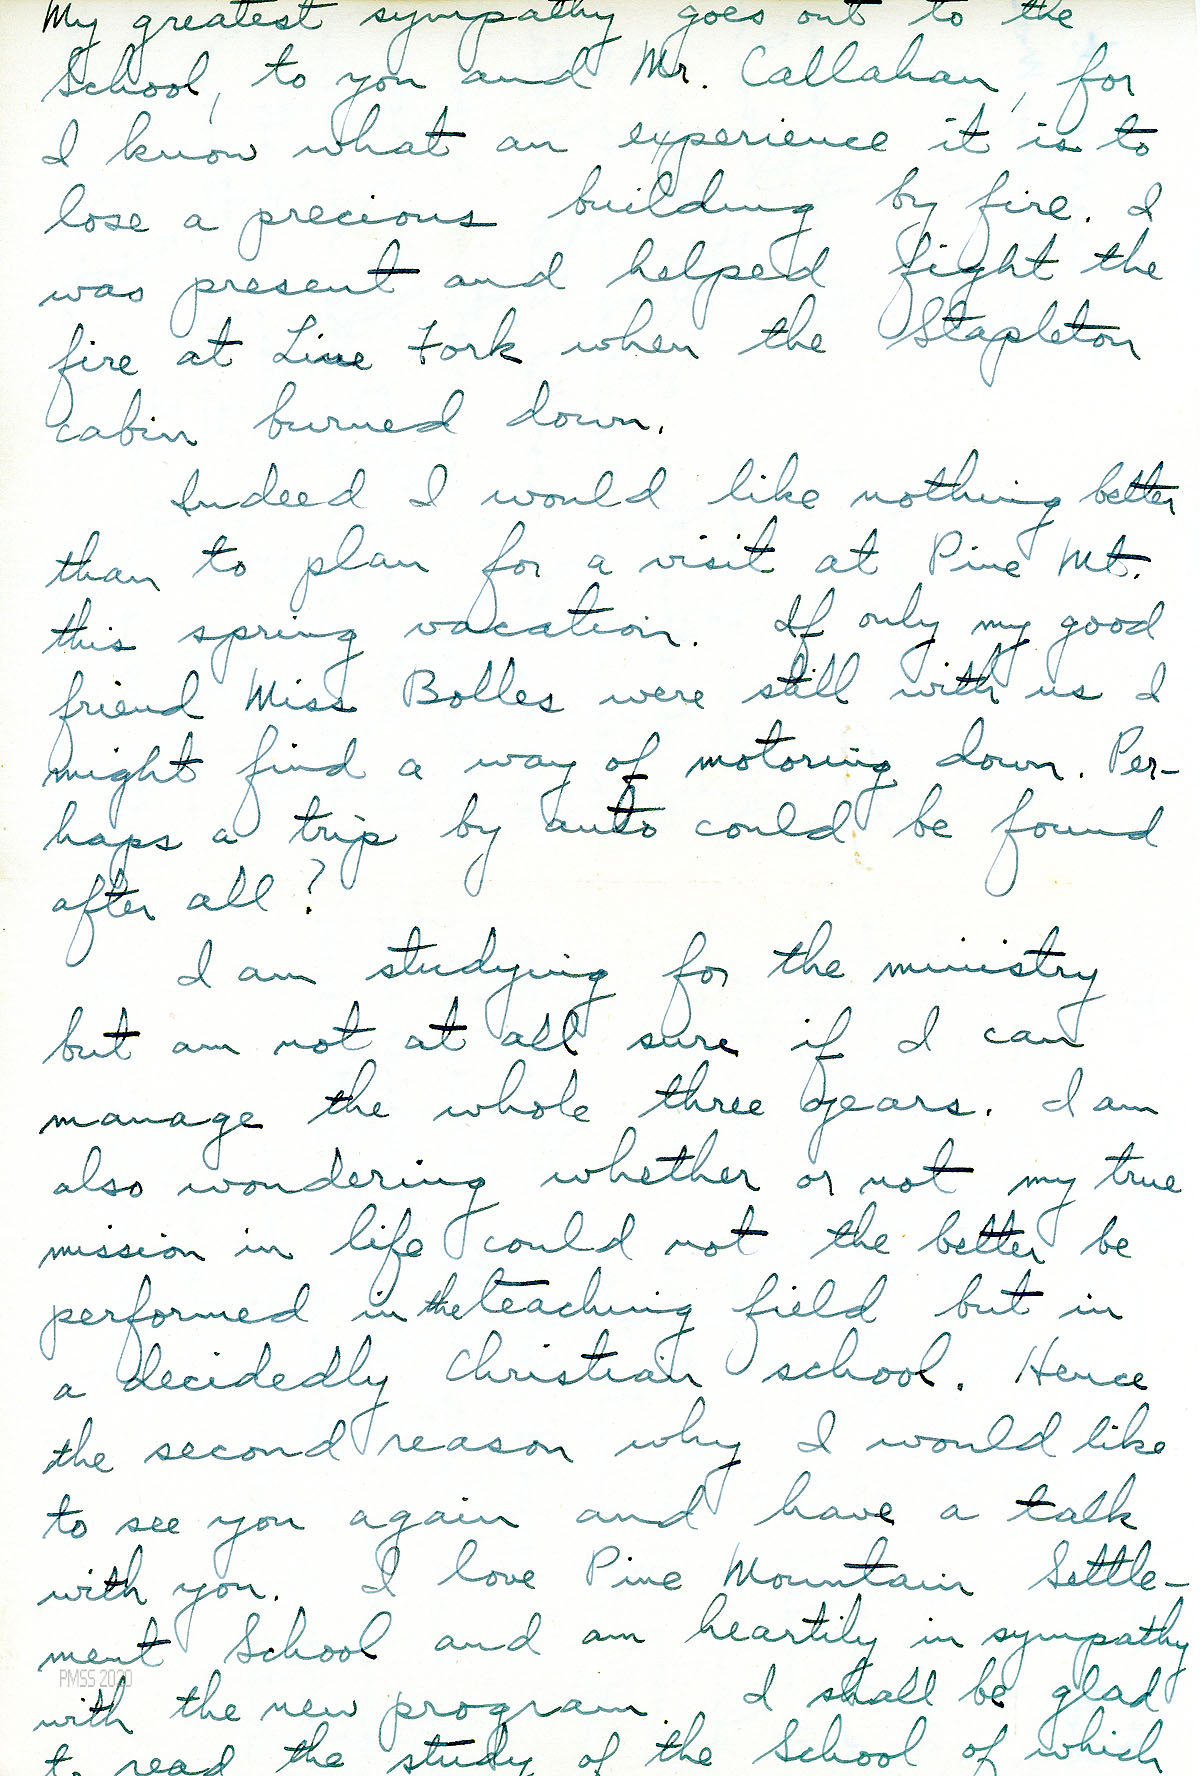 My greatest sympathy goes out to the
School, to you and Mr. Callahan, for
I know what an experience it is to
lose a precious building by fire. I
was present and helped fight the
fire at Line Fork when the Stapleton
cabin burned down.
Indeed I would like nothing better
than to plan for a visit at Pine Mt.
this spring vacation. If only my good
friend Miss Bolles were still with us I
might find a way of motoring down. Per-
haps a trip by auto could be found
after all?
I am studying for the ministry
but am not at all sure if I can
manage the whole three years. I am
also wondering whether or not my true
mission in life could not the better be
performed in the teaching field but in
a decidedly Christian school. Hence
the second reason why I would like
to see you again and have a talk
with you. I love Pine Mountain Settle-
ment School and am heartily in sympathy
PMSS 2020
with the new program. I shall be glad
to read the study of the School of which